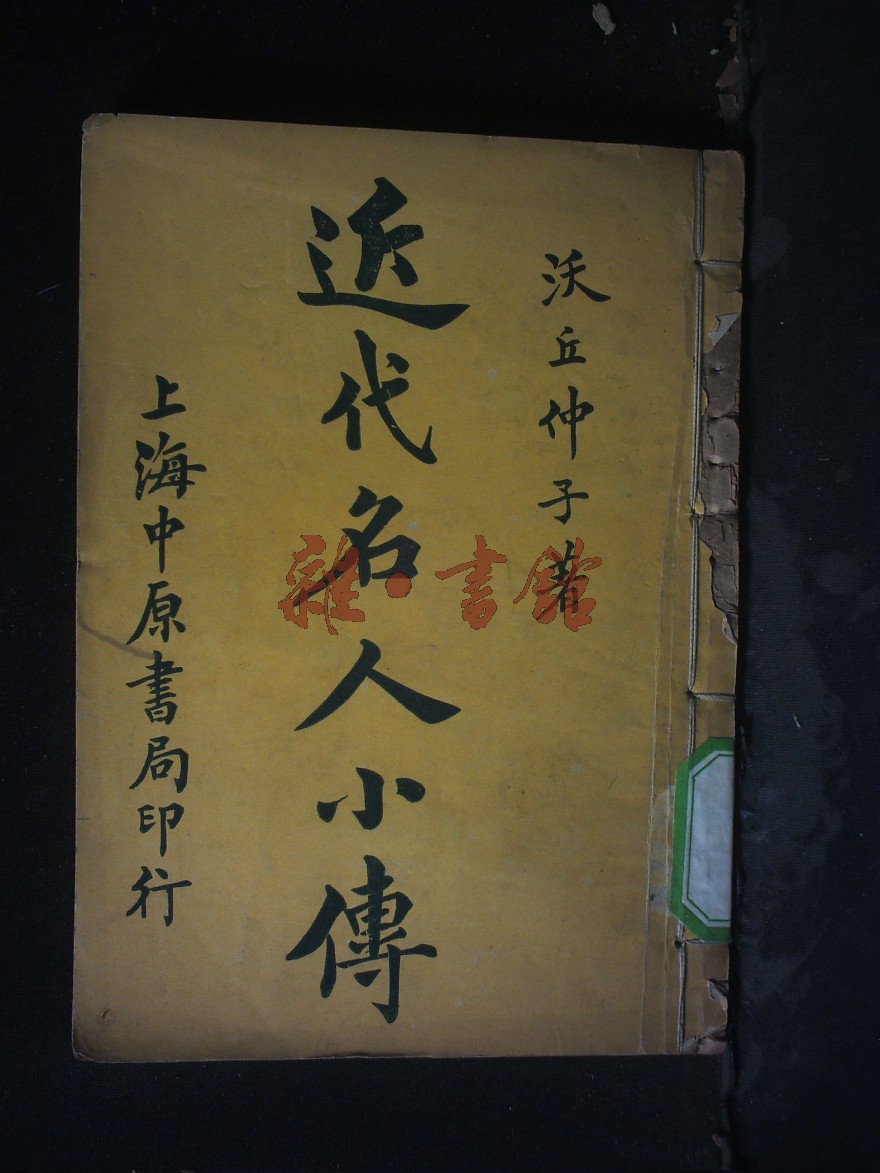 沃丘仲子著
近代名人小傳
上海中原書局印行
雜·書館